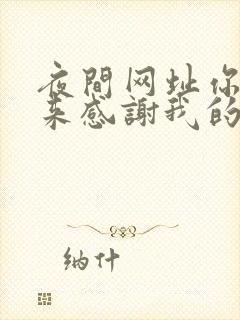 夜間网址你
来感謝我的
纳什